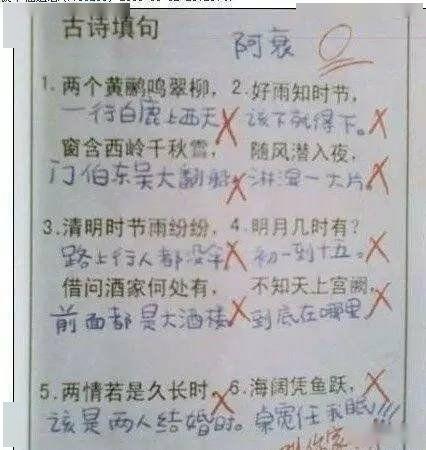 古诗填句
阿衰
0
1.两个黄鹂鸣翠柳, 2.好雨知时节,
一行白鹿上西天 该下就得下。
窗含西岭千秋雪, 随风潜入夜,
门伯东吴大翻船 淋湿一大片
3.清明时节雨纷纷, 4.明月几时有?
路上行人都没伞 初一到十五。
借问酒家何处有, 不知天上宫阙,
前面都是大酒楼 到底在哪里
5.两情若是久长时, 6.海阔凭鱼跃,
该是两人结婚时。 桌宽任我趴!!!